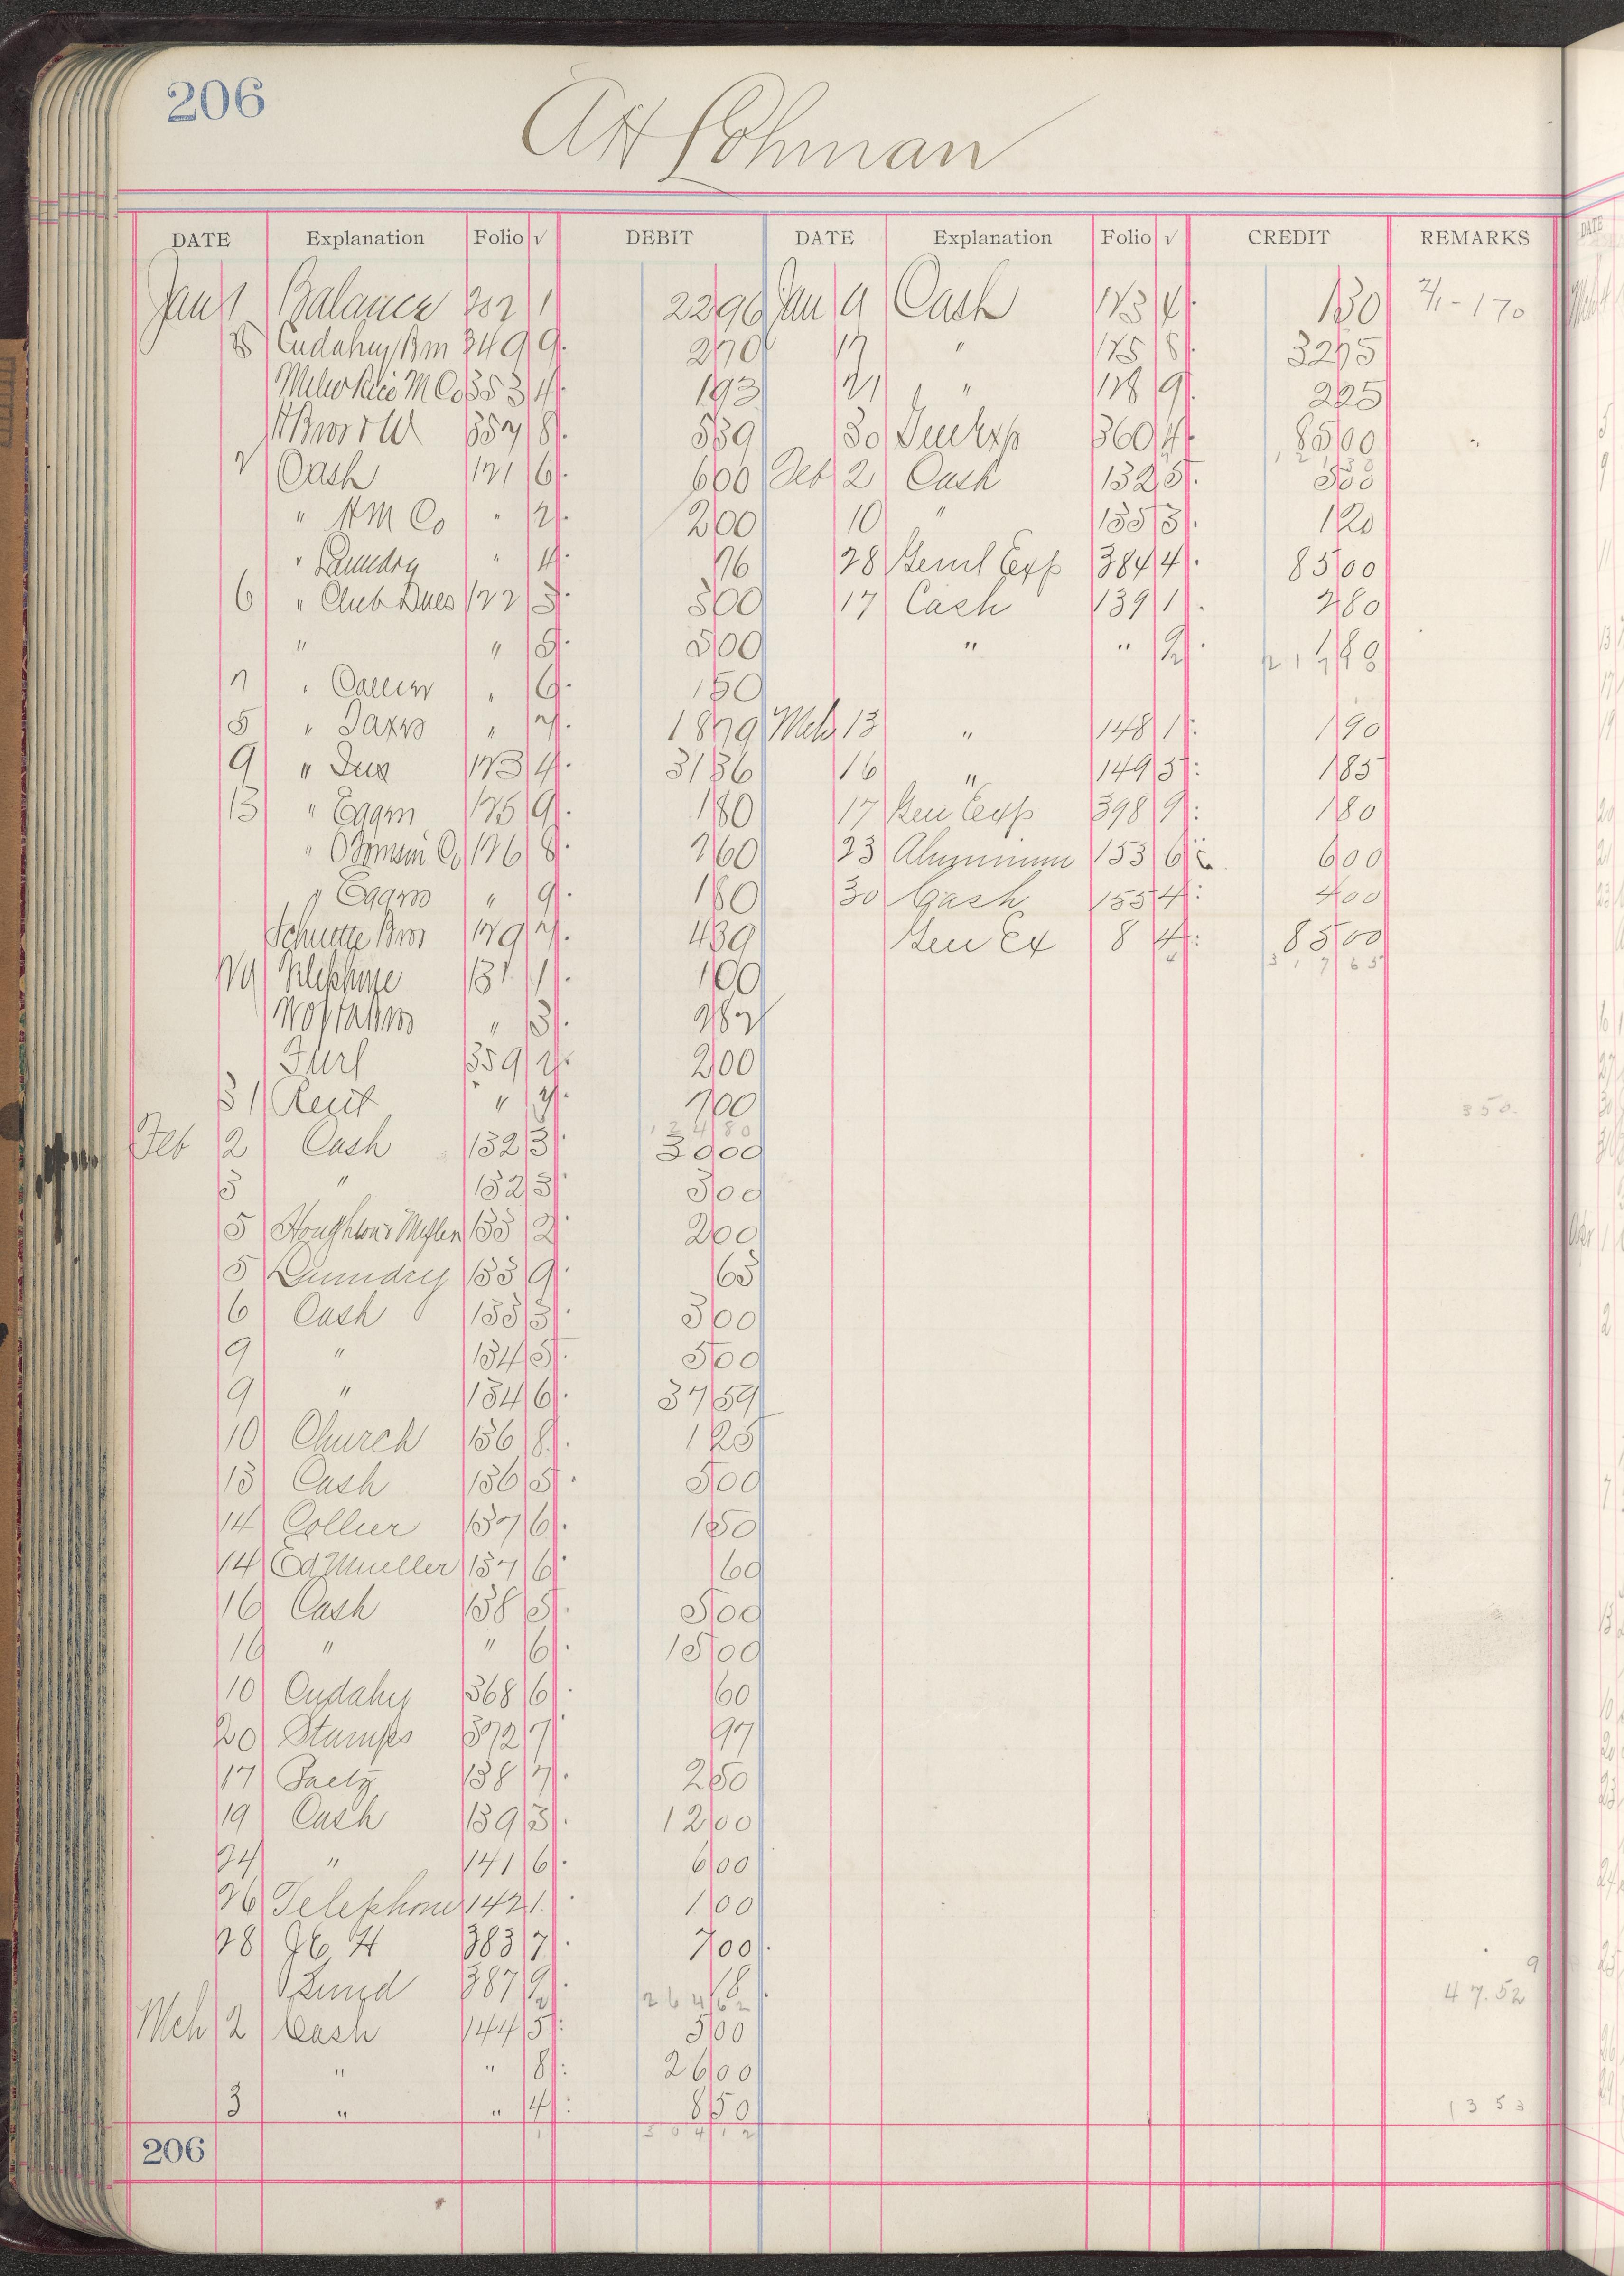 206
A H Lohman
DATE Explanation Folio √ DEBIT DATE Explanation Folio √ CREDIT REMARKS
Jan 1 Balance 1 2296 Jan 9 Cash 123 4 130 2/1-170
Cudahy Bro 349 9 270 17 " 125 8 3275
M Co 353 4 193 21 " 128 9 225
357 8 539 30 Gen Exp 360 4 8500
2 Cash 121 6 600 Feb 2 Cash 132 5
" H M Co " 2 200 10 " 135 3 120
" Laundry " 4 76 28 Genl Exp 384 4 8500
6 " Club Dues 122 3 300 17 Cash 139 1 280
" " 5 500 " " 2
7 " " 6 150
8 " Taxes " 7 1879 Mch 13 " 148 1 190
9 " 123 4 3136 16 " 149 5 185
13 " Eggs 125 9 180 17 Gen Exp 398 9 180
" Co 126 8 260 23 Aluminum 153 6 600
" Eggs " 9 180 30 Cash 155 4 400
Schuette Bros 129 7 439 Gen Ex 8 4 8500
3 1 7 6 5
29 Telephone 131 1 100
" 3 282
Furl 359 2 200
31 Rent " 7 700 350.
1 2 4 8 0
Feb 2 Cash 132 3 3000
3 " 132 3 300
5 Houghton & Mifflen 133 2 200
5 Laundry 133 9 63
6 Cash 133 3 300
9 " 134 5 500
9 " 134 6 3759
10 Church 136 8 125
13 Cash 136 5 500
14 Collier 137 6 150
14 Ed Mueller 137 6 60
16 Cash 138 5 500
16 " " 6 1500
10 Cudahy 368 6 60
20 Stamps 372 7 97
17 138 7 250
19 Cash 139 3 1200
24 " 141 6 600
26 Telephone 142 1 100
28 H 383 7 700
387 9 18 47.52
2 6 4 6 2
Mch 2 Cash 144 5 500
" " 8 2600
3 " " 4 850 1353
3 0 4 1 2
206